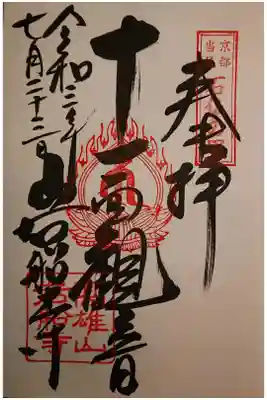 京都
当尾
奉拝
十一面観音
令和三年
七月二十二日
岩船寺
高雄山
岩船寺